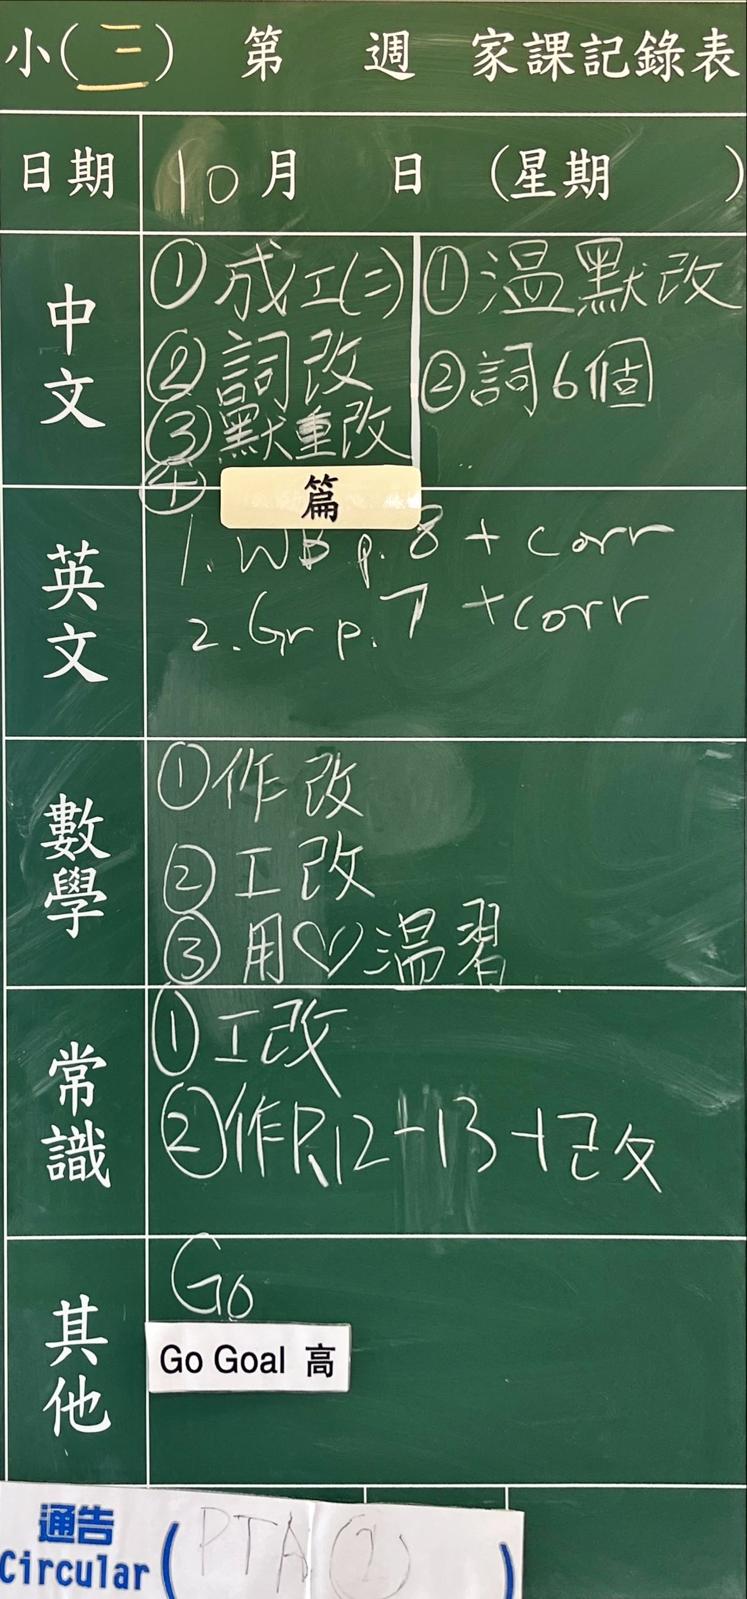 小(三) 第 週 家課記錄表
日期 10月 日 (星期 )
中文
①成工(二)
②詞改
③默重改
④
篇
①溫默改
②詞6個
英文
1. WB p.8 + corr
2. Gr p.7 + corr
數學
①作改
②工改
③用♡溫習
常識
①工改
②作P.12-13+改
其他
Go
Go Goal 高
通告
Circular ( PTA(2) )